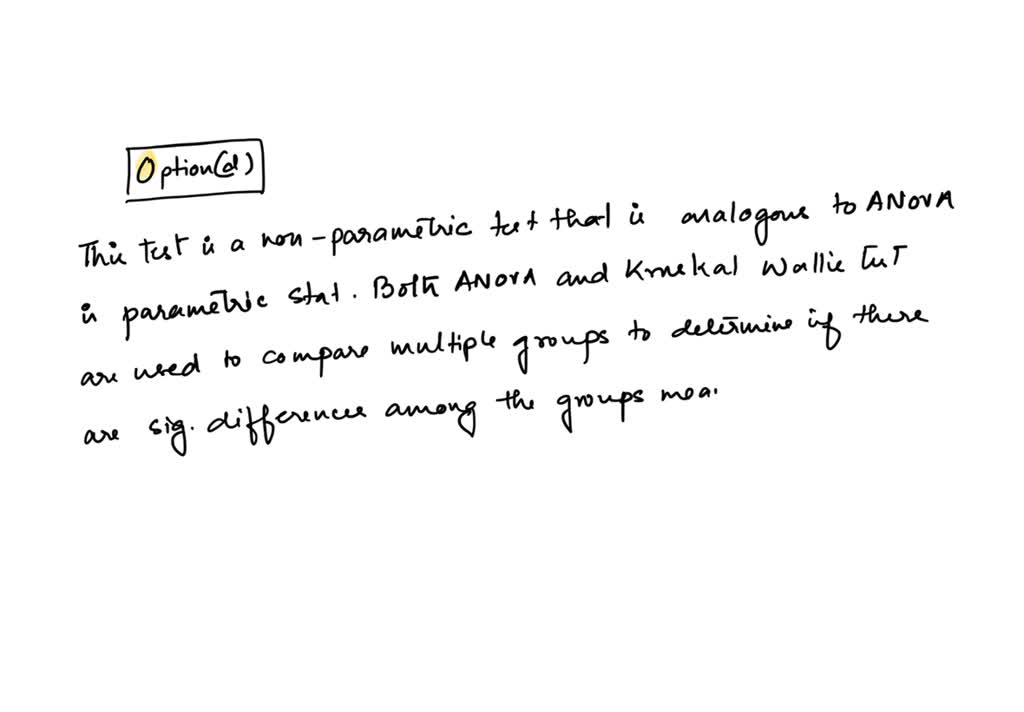 Option(d)
This test is a non-parametric test that is analogous to ANOVA
in parametric stat. Both ANOVA and Kruskal Wallis test
are used to compare multiple groups to determine if there
are sig. differences among the groups mea